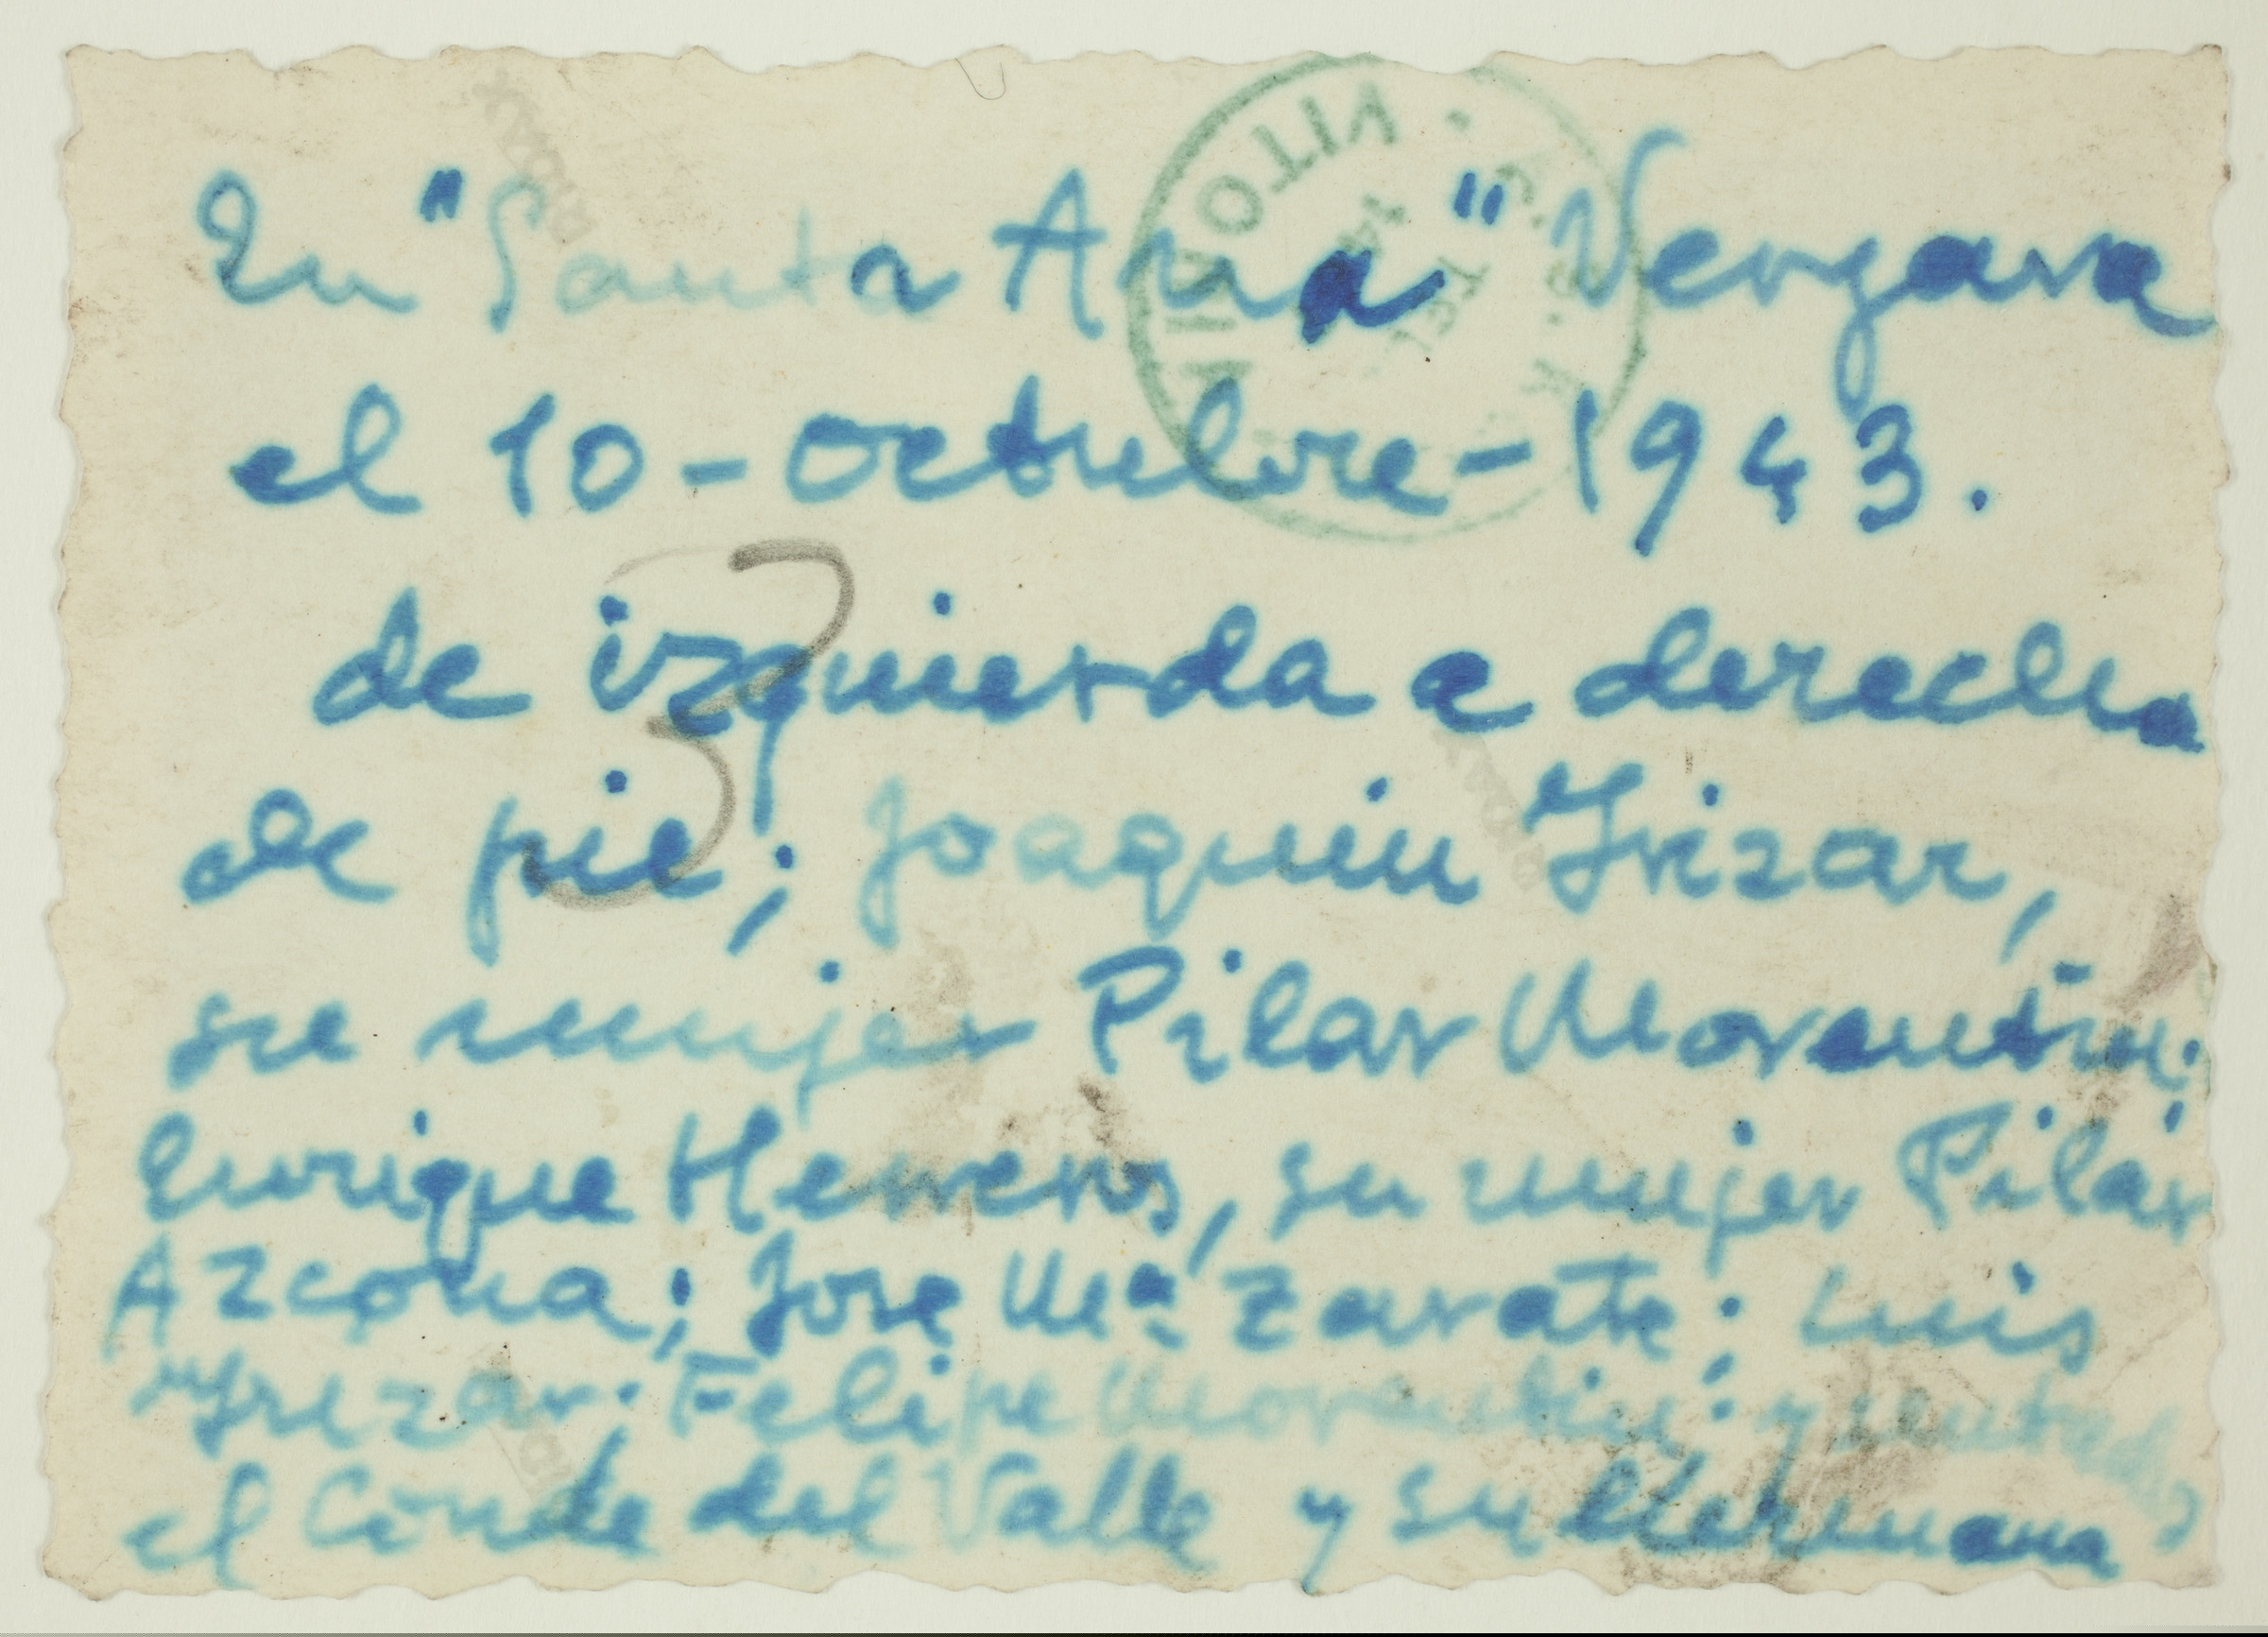 En "Santa Ana" Vergara
el 10 - octubre - 1943.
de izquierda a derecha
de pie; Joaquin Yrizar,
su mujer Pilar Morentin;
Enrique Herreros, su mujer Pilar
Azcona; Jose Mª Zarate; Luis
Yrizar; Felipe Morentin; y sentados
el Conde del Valle y su hermana
3
VITO
14